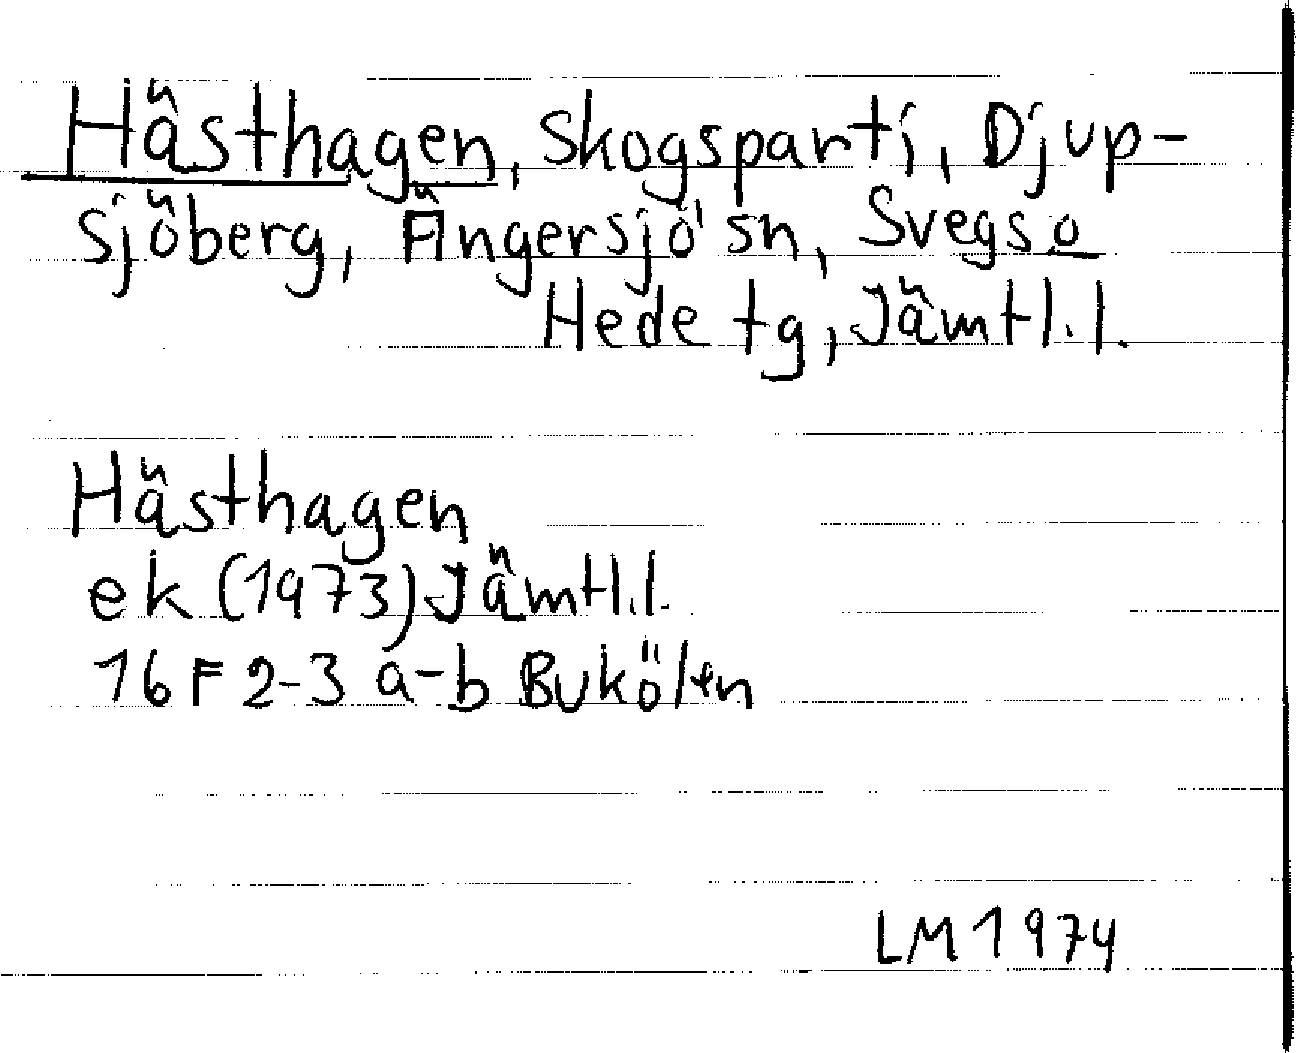 Hästhagen, Skogsparti, Djup-
sjöberg, Ängersjö sn, Svegs o
Hede tg, Jämtl.l.
Hästhagen
ek (1973) Jämtl.l.
16 F 2-3 a-b Bukölen
LM 1974